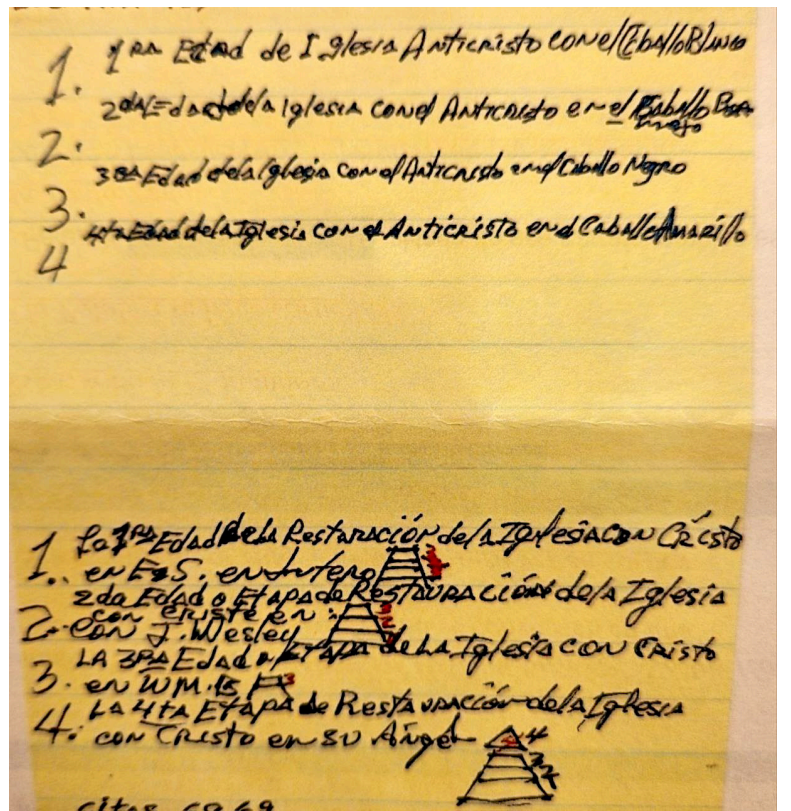 1. 1RA Edad de Iglesia Anticristo con el Caballo Blanco
2da Edad de la Iglesia con el Anticristo en el Caballo
2.
3RA Edad de la Iglesia con el Anticristo en el Caballo Negro
3.
4ta Edad de la Iglesia con el Anticristo en el Caballo Amarillo
4
1. La 1RA Edad de la Restauración de la Iglesia con Cristo
en E.S. en Lutero
2da Edad o Etapa de Restauración de la Iglesia
con Cristo en:
2. con J. Wesley
LA 3RA Edad o Etapa de la Iglesia con Cristo
3. en WM. B 3
LA 4ta Etapa de Restauración de la Iglesia
4. con Cristo en su Ángel 4
3
2